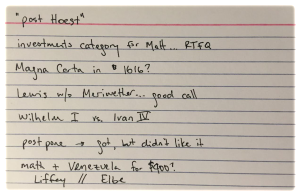 "post Hoest"
investments category for Matt... RTFQ
Magna Carta in 1616?
Lewis w/o Meriwether... good call
Wilhelm I vs. Ivan IV
postpone → got, but didn't like it
math + Venezuela for $400?
Liffey // Elbe